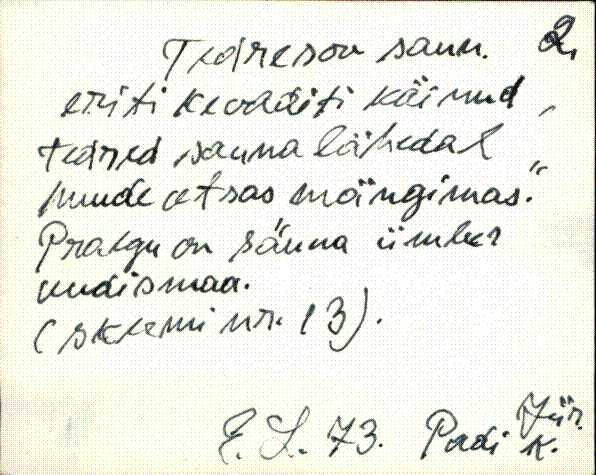 Tedresoo saun. 2.
eriti kevaditi käinud
tedred sauna lähedal
puude otsas mängimas."
Praegu on sauna ümber
uudismaa.
(skeemi nr. 13).
E. L. 73. Padi Jür. k.